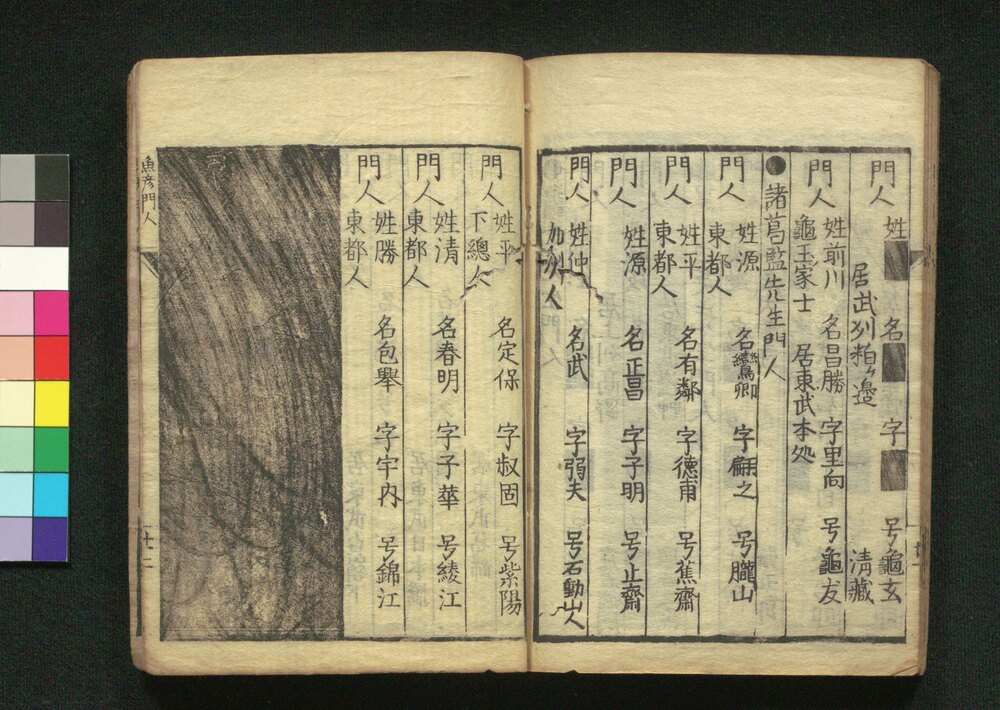 門人 姓■ 名■ 字■ 号龜玄
居武刕粕ヶ邊 清藏
門人 姓前川 名昌勝 字里向 号龜友
龜玉家士 居東武本処
●諸葛監先生門人
門人 姓源 名鸞卿 字翩之 号朧山
東都人
門人 姓平 名有鄰 字德甫 号蕉齋
東都人
門人 姓源 名正昌 字子明 号止齋
門人 姓仲 名武 字弱夫 号石動山人
加刕人
門人 姓平 名定保 字叔固 号紫陽
下總人
門人 姓清 名春明 字子華 号綾江
東都人
門人 姓勝 名包舉 字宇内 号錦江
東都人
魚彦門人
廿二